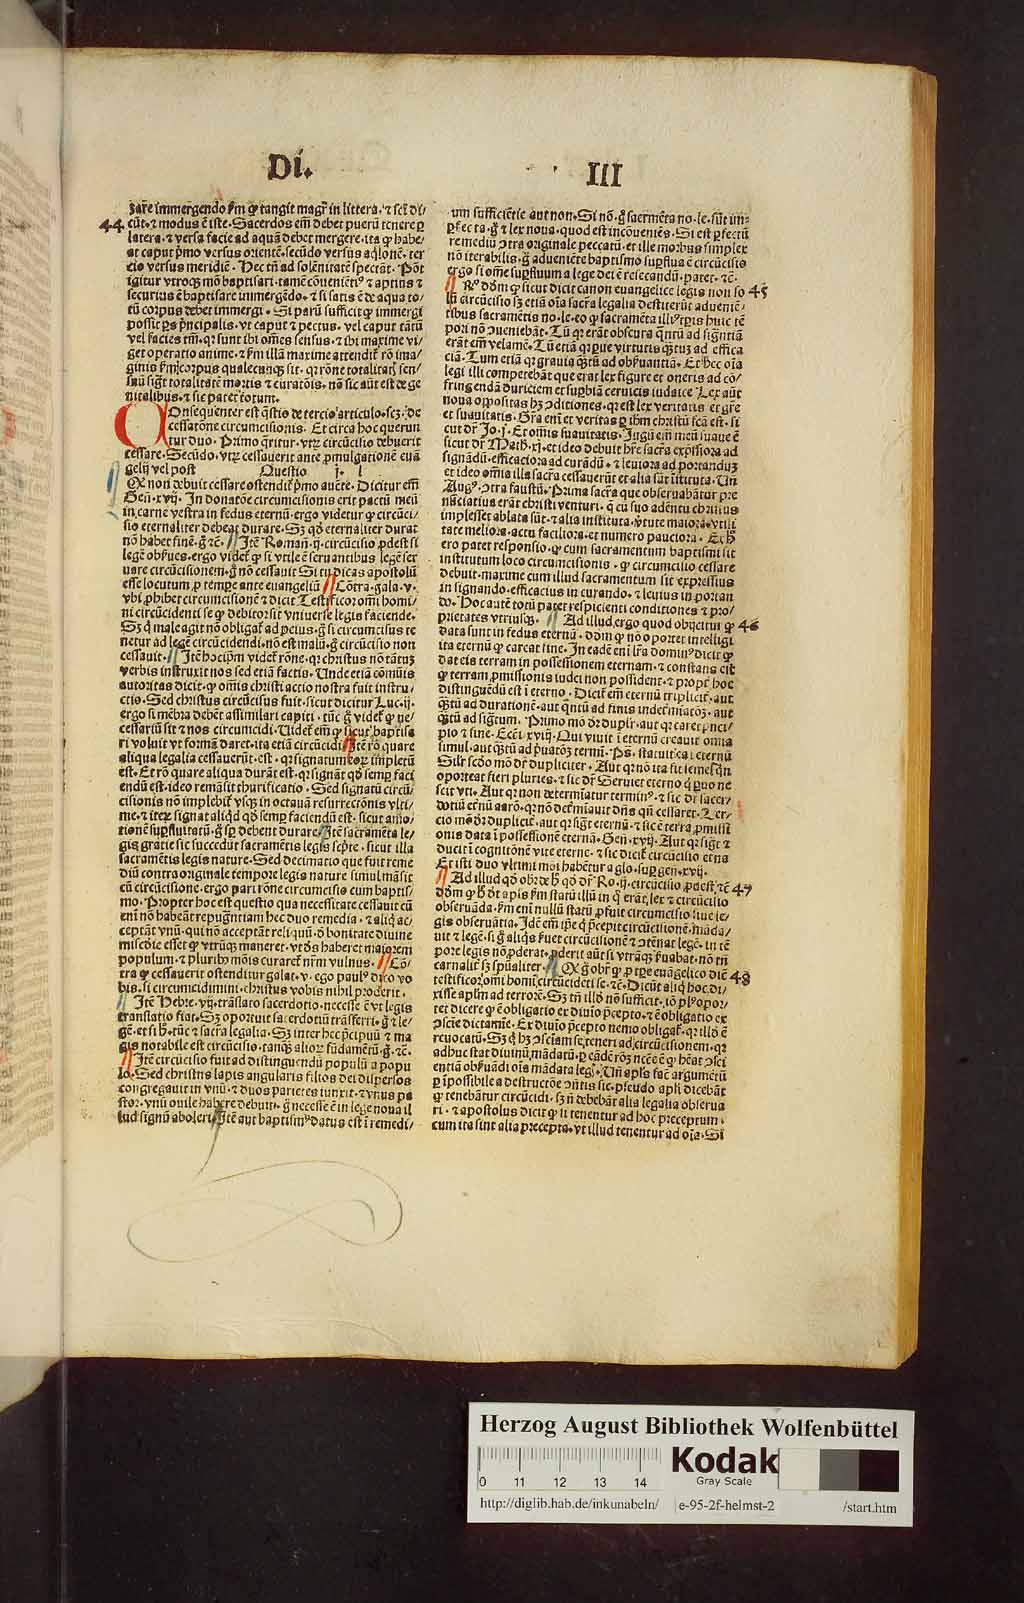 Di. III
zare immergendo km ꝙ tangit magr̄ in littera. ⁊ scḋ di/
44 cūt. ⁊ modus ē iste. Sacerdos em̄ debet puerū tenere ꝑ
latera. ⁊ versa facie ad aquā debet mergere. ita ꝙ habe/
at caput pͥmo versus orientē. secūdo versus aqͥlonē. ter
cio versus meridiē. Hec tn̄ ad solēnitatē spectāt. Pōt
igitur vtroqꝫ mō baptisari. tamē cōueniētiꝰ ⁊ aptius ⁊
securius ē baptisare immergēdo. ⁊ si satis ē de aqua to/
tū corpus debet immergi. Si parū sufficit ꝙ immergi
possit ꝑs pͥncipalis. vt caput ⁊ pectus. vel caput tātū
vel facies tm̄. qꝛ sunt ibi om̄es sensus. ⁊ ibi maxime vi/
get operatio anime. ⁊ km̄ illā maxime attendit̄ rō ima/
ginis
nitalibus. ⁊ sic patet totum.
Consequenter est q̄stio de tercio articulo. scꝫ. de
cessatōne circumcisionis. Et circa hoc querun
tur duo. Primo q̄ritur. vtꝝ circūcisio debuerit
cessare. Secūdo. vtꝝ cessauerit ante ꝓmulgationē euā
gelij vel post Questio j. l
Qꝙ non debuit cessare ostendit̄ pͥmo auc̄te. Dicitur em̄
Gen̄. xvij. In donatōne circumcisionis erit pactū meū
in carne vestra in fedus eternū. ergo videtur ꝙ circūci/
sio eternaliter debeat durare. Sꝫ qd̄ eternaliter durat
nō habet finē. g̊ ⁊c. Itē Roman̄. ij. circūcisio ꝓdest si
legē obẜues. ergo videt̄ ꝙ si vtile ē seruantibus legē ser
uare circūcisionem. g̊ nō cessauit Si tu dicas apostolū
esse locutum ꝓ tempe ante euangeliū Cōtra. gala. v.
vbi ꝓhibet circumcisionē ⁊ dicit Testificor omī homi/
ni circūcidenti se ꝙ debitor sit vniuerse legis faciende.
Sꝫ qͥ male agit nō obligat̄ ad peius. g̊ si circumcisus te
netur ad legē circūcidendi. nō est malū. g̊ circūcisio non
cessauit. Itē hocip̄m videt̄ rōne. qꝛ christus nō tātuꝫ
verbis instruxit nos sed etiā factis. Unde etiā cōmūis
autoritas dicit. ꝙ om̄is christi actio nostra fuit instru/
ctio. Sed christus circūcisus fuit. sicut dicitur Luc. ij.
ergo si mēbra debēt assimilari capiti. tūc g̊ videt̄ ꝙ ne/
cessariū sit ⁊ nos circumcidi. Uidet̄ em̄ ꝙ sicut baptisa
ri voluit vt formā daret. ita etiā circūcidi Itē rō quare
aliqua legalia cessauerūt. est. qꝛ signatum eoꝝ impletū
est. Et rō quare aliqua durāt est. qꝛ signāt qd̄ semꝑ faci
endū est. ideo remāsit thurificatio. Sed signatū circū/
cisionis nō implebit̄ vsqꝫ in octaua resurrectōnis vlti/
me. ⁊ iteꝝ signat aliqͥd qd̄ semꝑ faciendū est. sicut amo/
tionē suꝑfluitatū. g̊ sꝑ debent durare. Itē sacramēta le/
gis gratie sic succedūt sacramētis legis scp̄te. sicut illa
sacramētis legis nature. Sed decimatio que fuit reme
diū contra originale tempore legis nature simul māsit
cū circūcisione. ergo pari rōne circumcisio cum baptis/
mo. Propter hoc est questio qua necessitate cessauit cū
enī nō habeāt repugn̄tiam hec duo remedia. ⁊ aliqͥ ac/
ceptāt vnū. qui nō acceptāt reliquū. d̄ bonitate diuine
misc̄die esset ꝙ vtrūqꝫ maneret. vt d̄s haberet maiorem
populum. ⁊ pluribꝰ mōis curaret nr̄m vulnus. Cō/
tra ꝙ cessauerit ostenditur galat. v. ego paulꝰ dico vo
bis. si circumcidimini. christus vobis nihil ꝓderit.
Itē Hebre. vij. trāslato sacerdotio. necesse ē vt legis
translatio fiat. Sꝫ oportuit sacerdotiū trāsferri. g̊ ⁊ le/
gē. et si h̄. tūc ⁊ sacra legalia. Sꝫ inter hec pͥncipuū ⁊ ma
gis notabile est circūcisio. tanqꝫ alioꝝ fūdamētū. g̊. ⁊c.
Itē circūcisio fuit ad distinguendū populū a popu
lo. Sed christus lapis angularis filios dei dispersos
congregauit in vnū. ⁊ duos parietes iunxit. ⁊ vnus pa
stor. vnū ouile habere debuit. g̊ necesse ē in lege noua il
lud signū aboleri Itē aut baptismꝰ datus est ī remedi/
um sufficiētie aut non. Si nō. g̊ sacrmēta no. le. sūt im/
ꝑfecta. g̊ ⁊ lex noua. quod est incōueniēs. Si est ꝑfectū
remediū ↄtra originale peccatū. et ille morbus simplex
nō iterabilis. g̊ adueniēte baptismo suꝑflua ē circūcisio
ergo si om̄e suꝑfluum a lege dei ē reiecandū. patet. ⁊c.
Rō dōm̄ ꝙ sicut dicit canon euangelice legis non so 45
lū circūcisio sꝫ etiā oīa sacr̄a legalia destiterūt aduenīe/
tibus sacramētis no. le. eo ꝙ sacramēta illiꝰ tꝑis huic tē
pori nō ↄueniebāt. Tū qꝛ erāt obscura qͣntū ad sign̄tiā
erāt em̄ velamē. Tū etiā qꝛ ꝑue virtutis qͣꝫtuꝫ ad efficā
ciā. Tum etiā qꝛ grauia qͣꝫtū ad obẜuantiā. Et hec oīa
legi illi competebāt que erat lex figure et oneris ad cō/
fringendā duriciem et suꝑbiā ceruicis iudaice Lex aūt
noua oppositas hꝫ ↄditiones. qꝛ est lex veritatis et gr̄e
et suauitatis. Gr̄a em̄ et veritas ꝑ ihm̄ christū fcā est. si
cut dr̄ Jo. j. Et om̄is suauitatis. Jugū em̄ meū suaue ē
sicut dr̄ Math. xj. et ideo debuit hr̄e sacra expssiora ad
signādū. efficaciora ad curādū. ⁊ leuiora ad portanduꝫ
et ideo omīa illa sacra cessauerūt et alia sūt īstituta. Un
Augꝰ. ↄtra faustū. Prima sacra que obseruabātur pre
nūciatiua erāt christi venturi. q̄ cū suo aduētu christus
implesset ablata sūt. ⁊ alia instituta. v̄tute maiora. vtili
tate meliora. actu faciliora. et numero pauciora. Ex h̄
ero patet responsio. ꝙ cum sacramentum baptismi sit
institutum loco circumcisionis. ꝙ circumcisio cessare
debuit. maxime cum illud sacramentum sit expressius
in signando. efficacius in curando. ⁊ leuius in portan
do. Hoc autē totū patet respicienti conditiones ⁊ pro/
prietates vtriusqꝫ. Ad illud. ergo quod obijcitur ꝙ 46
data sunt in fedus eternū. dōm̄ ꝙ nō oportet intelligi
ita eternū ꝙ careat fine. In eadē eni lr̄a dominꝰ dicit ꝙ
dat eis terram in possessionem eternam. ⁊ constans est
ꝙ terram ꝓmissionis iudei non possident. ⁊ propt̄ hoc
distinguēdū est ī eterno. Dicit̄ em̄ eternū tripliciꝉ. aut
qͣꝫtū ad durationē. aut qͣntū ad finis indeẗmiatōꝫ. aut
qͣꝫtū ad sign̄tum. Primo mō dr̄ dupꝉr. aut qꝛ caret pͥnci/
pio ⁊ fine. Ecc̄i xviij. Qui viuit ī eternū creauit omīa
simul. aut qͣꝫtū ad pͥuatōꝫ term̄. Ps. statuit ea ī eternū
Silr̄ scd̄o mō dr̄ dupliciter. Aut qꝛ nō ita fit semel qͥn
oporteat fieri pluries. ⁊ sic dr̄ Seruiet eterno qꝛ paruo ne
sciet vti. Aut qꝛ non deterīatur terminꝰ. ⁊ sic dr̄ sacer/
dotiū eternū aarō. qꝛ nō detīauit dn̄s qn̄ cessaret. Ter/
cio mō dr̄ duplicit̄. aut qꝛ sig̃t eternū. ⁊ sic ē terra ꝓmissi
onis data ī possessionē eternā. Gen̄. xvij. Aut qꝛ sig̃t ⁊
ducit ī cognitōnē vite eterne. ⁊ sic dicit̄ circūcisio et̄na
Et isti duo vltimi moī habētur a glo. suꝑ gen̄. xvij.
Ad illud qd̄ obꝛ de h̄ qd̄ dr̄ Ro. ij. circūcisio ꝓdest. ⁊c 47
dōm̄ ꝙ h̄ dt̄ apl̄s km̄ statū illū in q̊ erāt lex ⁊ circūcisio
obseruāda. km̄ enī nullū statū ꝓfuit circumcisio siue le/
gis obseruātia. Idē em̄ ip̄e qͥ p̄cepit circūcisionē. māda/
uit ⁊ legē. si g̊ aliqͥs ẜuet circūcisionē ⁊ ↄtēnat legē. in tē
pore legis nō ꝓderat. ꝓderit aūt si vtrūqꝫ ẜuabat. nō tn̄
carnaliꝉ sꝫ sp̄ualiter. Qd̄ g̊ obꝛ ꝙ ꝑ tꝑe euāgelico diē 48
testificor. omī homī circūcidēti se. ⁊c. Dicūt aliqͥ hoc. di/
xisse apl̄m ad terrorē. Sꝫ tn̄ illd̄ nō sufficit. iō plꝰ opor/
tet dicere ꝙ ē obligatio ex diuīo p̄cepto. ⁊ ē obligatio ex
ↄscīe dictamīe. Ex diuīo p̄cepto nemo obligat̄. qꝛ illd̄ ē
reuocatū. Sꝫ qͥ hꝫ ↄsciam se. teneri ad circūcisionem. qꝛ
adhuc stat diuinū mādatū. ꝑ eādē rōꝫ nc̄ē ē ꝙ heat ↄsci
entiā obẜuādi oīs mādata legꝭ. Un̄ apl̄s fac̄ argumētū
ꝑ īpossibile a destructōe ↄn̄tis sic. pseudo apl̄i dicebāt
ꝙ tenebātur circūcidi. sꝫ n̄ debebāt alia legalia obserua
ri. ⁊ apostolus dicit ꝙ si tenentur ad hoc preceptum.
cum ita sint alia precepta. vt illud tenentur ad oīa. Si
Herzog August Bibliothek Wolfenbüttel
0 11 12 13 14
Kodak
Gray Scale
http://diglib.hab.de/inkunabeln/ e-95-2f-helmst-2 /start.htm